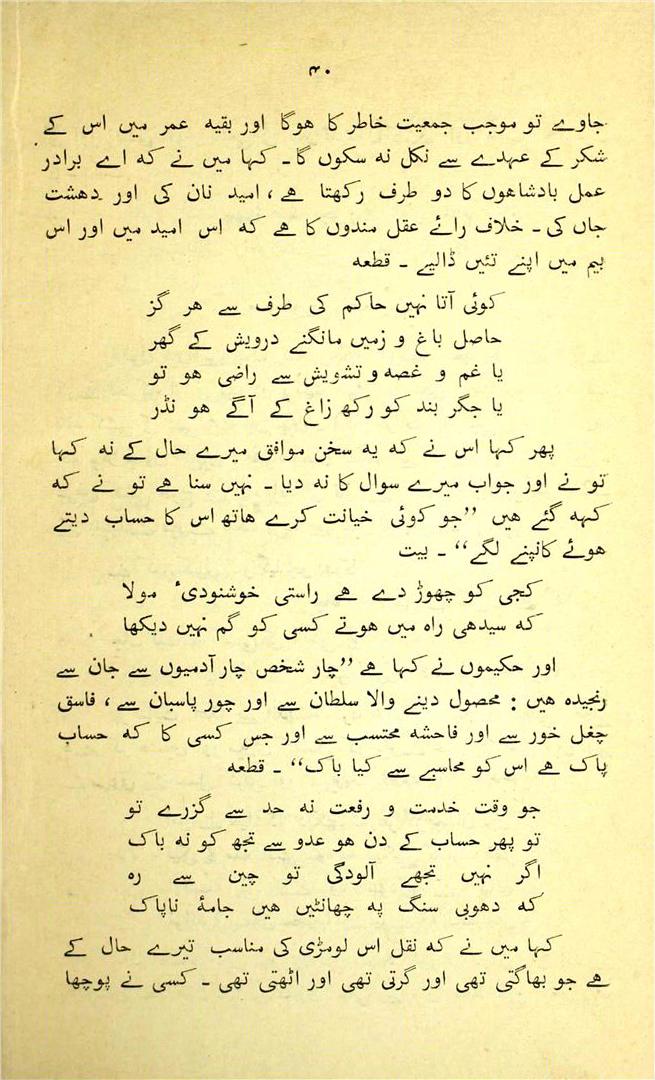 ۴۰
جاوے تو موجب جمعیت خاطر کا ھوگا اور بقیہ عمر میں اس کے
شکر کے عہدے سے نکل نہ سکوں گا۔ کہا میں نے کہ اے برادر
عمل بادشاھوں کا دو طرف رکھتا ھے، امید نان کی اور دھشت
جاں کی۔ خلاف رائے عقل مندوں کا ھے کہ اس امید میں اور اس
بیم میں اپنے تئیں ڈالیے۔ قطعہ
کوئی آتا نہیں حاکم کی طرف سے ھر گز
حاصل باغ و زمیں مانگنے درویش کے گھر
یا غم و غصہ و تشویش سے راضی ھو تو
یا جگر بند کو رکھ زاغ کے آگے ھو نڈر
پھر کہا اس نے کہ یہ سخن موافق میرے حال کے نہ کہا
تو نے اور جواب میرے سوال کا نہ دیا۔ نہیں سنا ھے تو نے کہ
کہہ گئے ھیں ”جو کوئی خیانت کرے ھاتھ اس کا حساب دیتے
ھوئے کانپنے لگے“۔ بیت
کجی کو چھوڑ دے ھے راستی خوشنودیٔ مولا
کہ سیدھی راہ میں ھوتے کسی کو گم نہیں دیکھا
اور حکیموں نے کہا ھے ”چار شخص چار آدمیوں سے جان سے
رنجیدہ ھیں: محصول دینے والا سلطان سے اور چور پاسبان سے، فاسق
چغل خور سے اور فاحشہ محتسب سے اور جس کسی کا کہ حساب
پاک ھے اس کو محاسبے سے کیا باک“۔ قطعہ
جو وقت خدمت و رفعت نہ حد سے گزرے تو
تو پھر حساب کے دن ھو عدو سے تجھ کو نہ باک
اگر نہیں تجھے آلودگی تو چین سے رہ
کہ دھوبی سنگ پہ چھانٹیں ھیں جامۂ ناپاک
کہا میں نے کہ نقل اس لومڑی کی مناسب تیرے حال کے
ھے جو بھاگتی تھی اور گرتی تھی اور اٹھتی تھی۔ کسی نے پوچھا